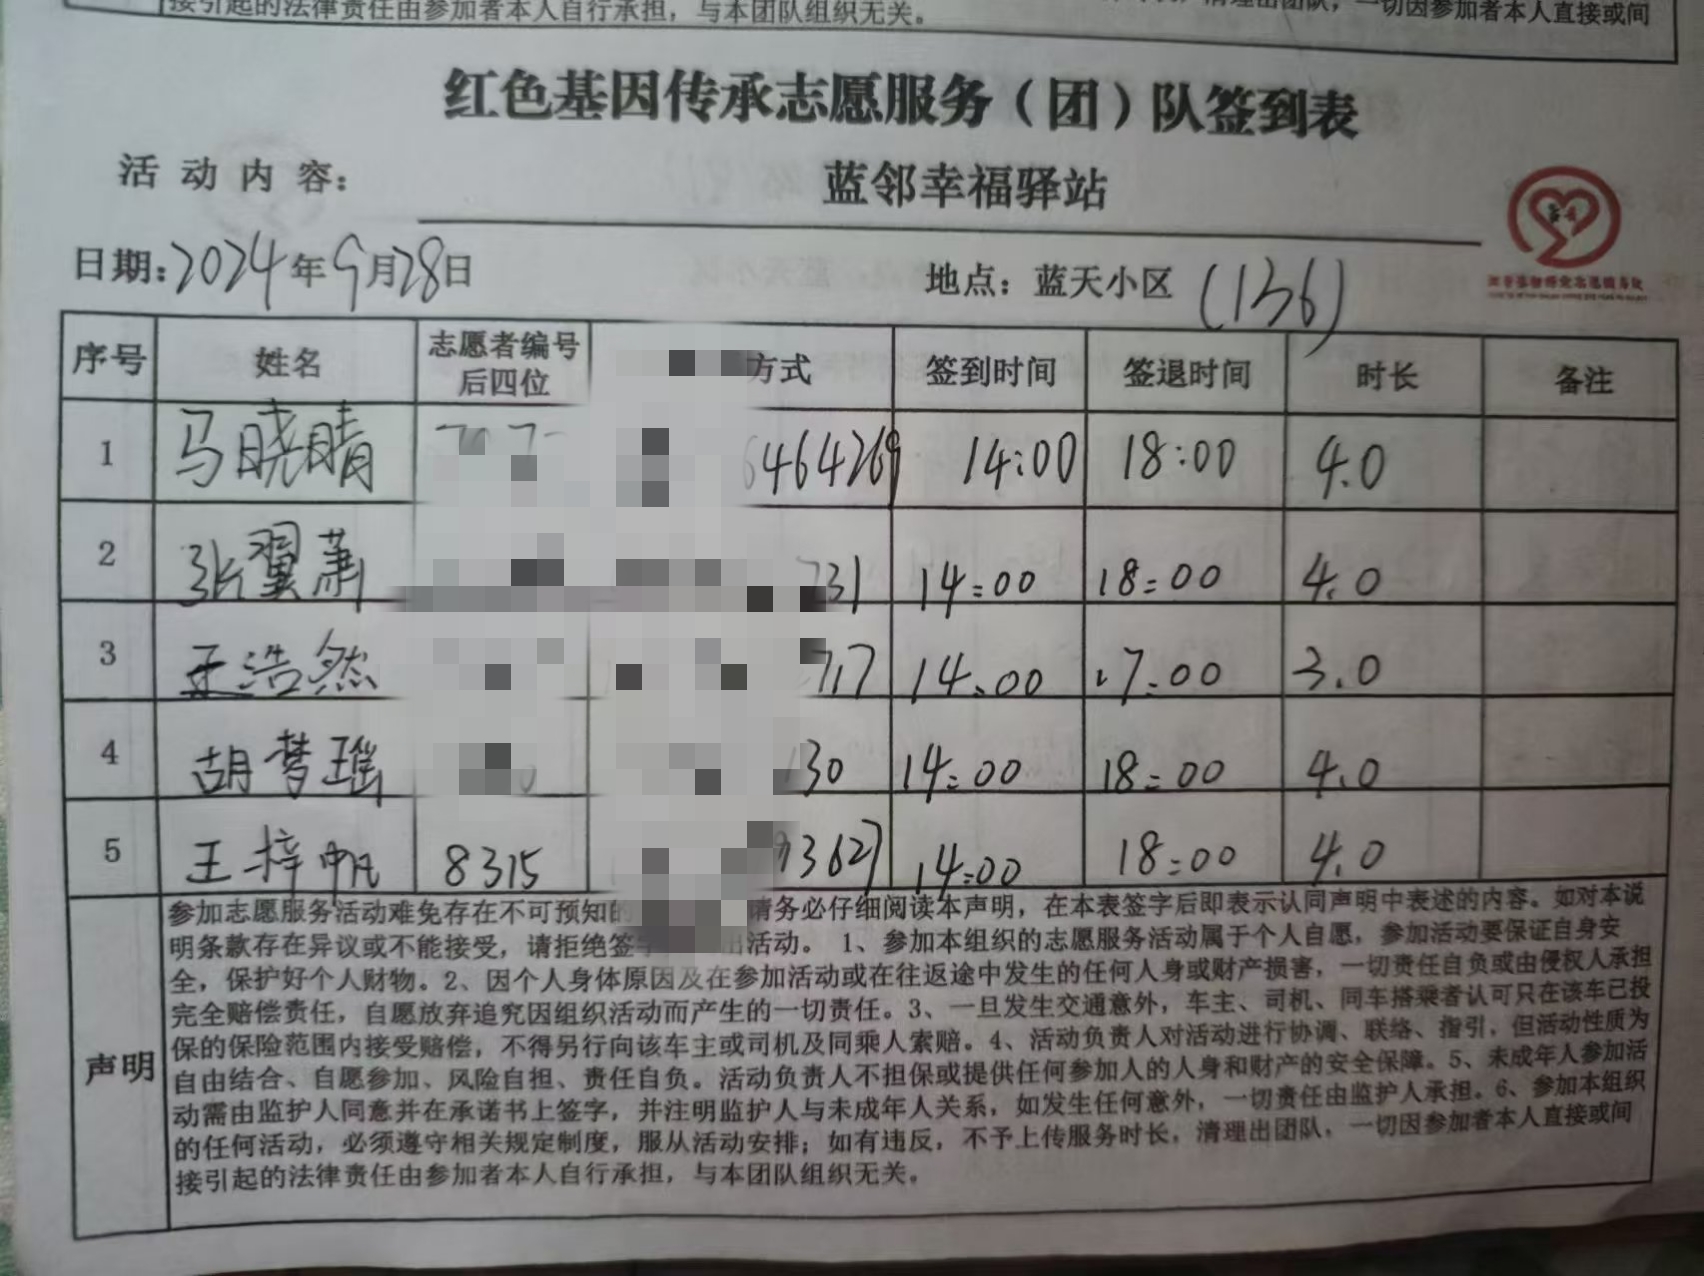 接引起的法律责任由参加者本人自行承担，与本团队组织无关。
清理出团队，一切因参加者本人直接或间
红色基因传承志愿服务（团）队签到表
活动内容： 蓝邻幸福驿站
日期：2024年9月28日 地点：蓝天小区 (136)
序号 姓名 志愿者编号后四位 方式 签到时间 签退时间 时长 备注
1 马晓晴 6464269 14:00 18:00 4.0
2 张翼萧 731 14:00 18:00 4.0
3 王浩然 717 14:00 17:00 3.0
4 胡梦瑶 130 14:00 18:00 4.0
5 王梓帆 8315 93627 14:00 18:00 4.0
声明
参加志愿服务活动难免存在不可预知的 请务必仔细阅读本声明，在本表签字后即表示认同声明中表述的内容。如对本说
明条款存在异议或不能接受，请拒绝签 出活动。1、参加本组织的志愿服务活动属于个人自愿，参加活动要保证自身安
全，保护好个人财物。2、因个人身体原因及在参加活动或在往返途中发生的任何人身或财产损害，一切责任自负或由侵权人承担
完全赔偿责任，自愿放弃追究因组织活动而产生的一切责任。3、一旦发生交通意外，车主、司机、同车搭乘者认可只在该车已投
保的保险范围内接受赔偿，不得另行向该车主或司机及同乘人索赔。4、活动负责人对活动进行协调、联络、指引，但活动性质为
自由结合、自愿参加、风险自担、责任自负。活动负责人不担保或提供任何参加人的人身和财产的安全保障。5、未成年人参加活
动需由监护人同意并在承诺书上签字，并注明监护人与未成年人关系，如发生任何意外，一切责任由监护人承担。6、参加本组织
的任何活动，必须遵守相关规定制度，服从活动安排；如有违反，不予上传服务时长，清理出团队，一切因参加者本人直接或间
接引起的法律责任由参加者本人自行承担，与本团队组织无关。